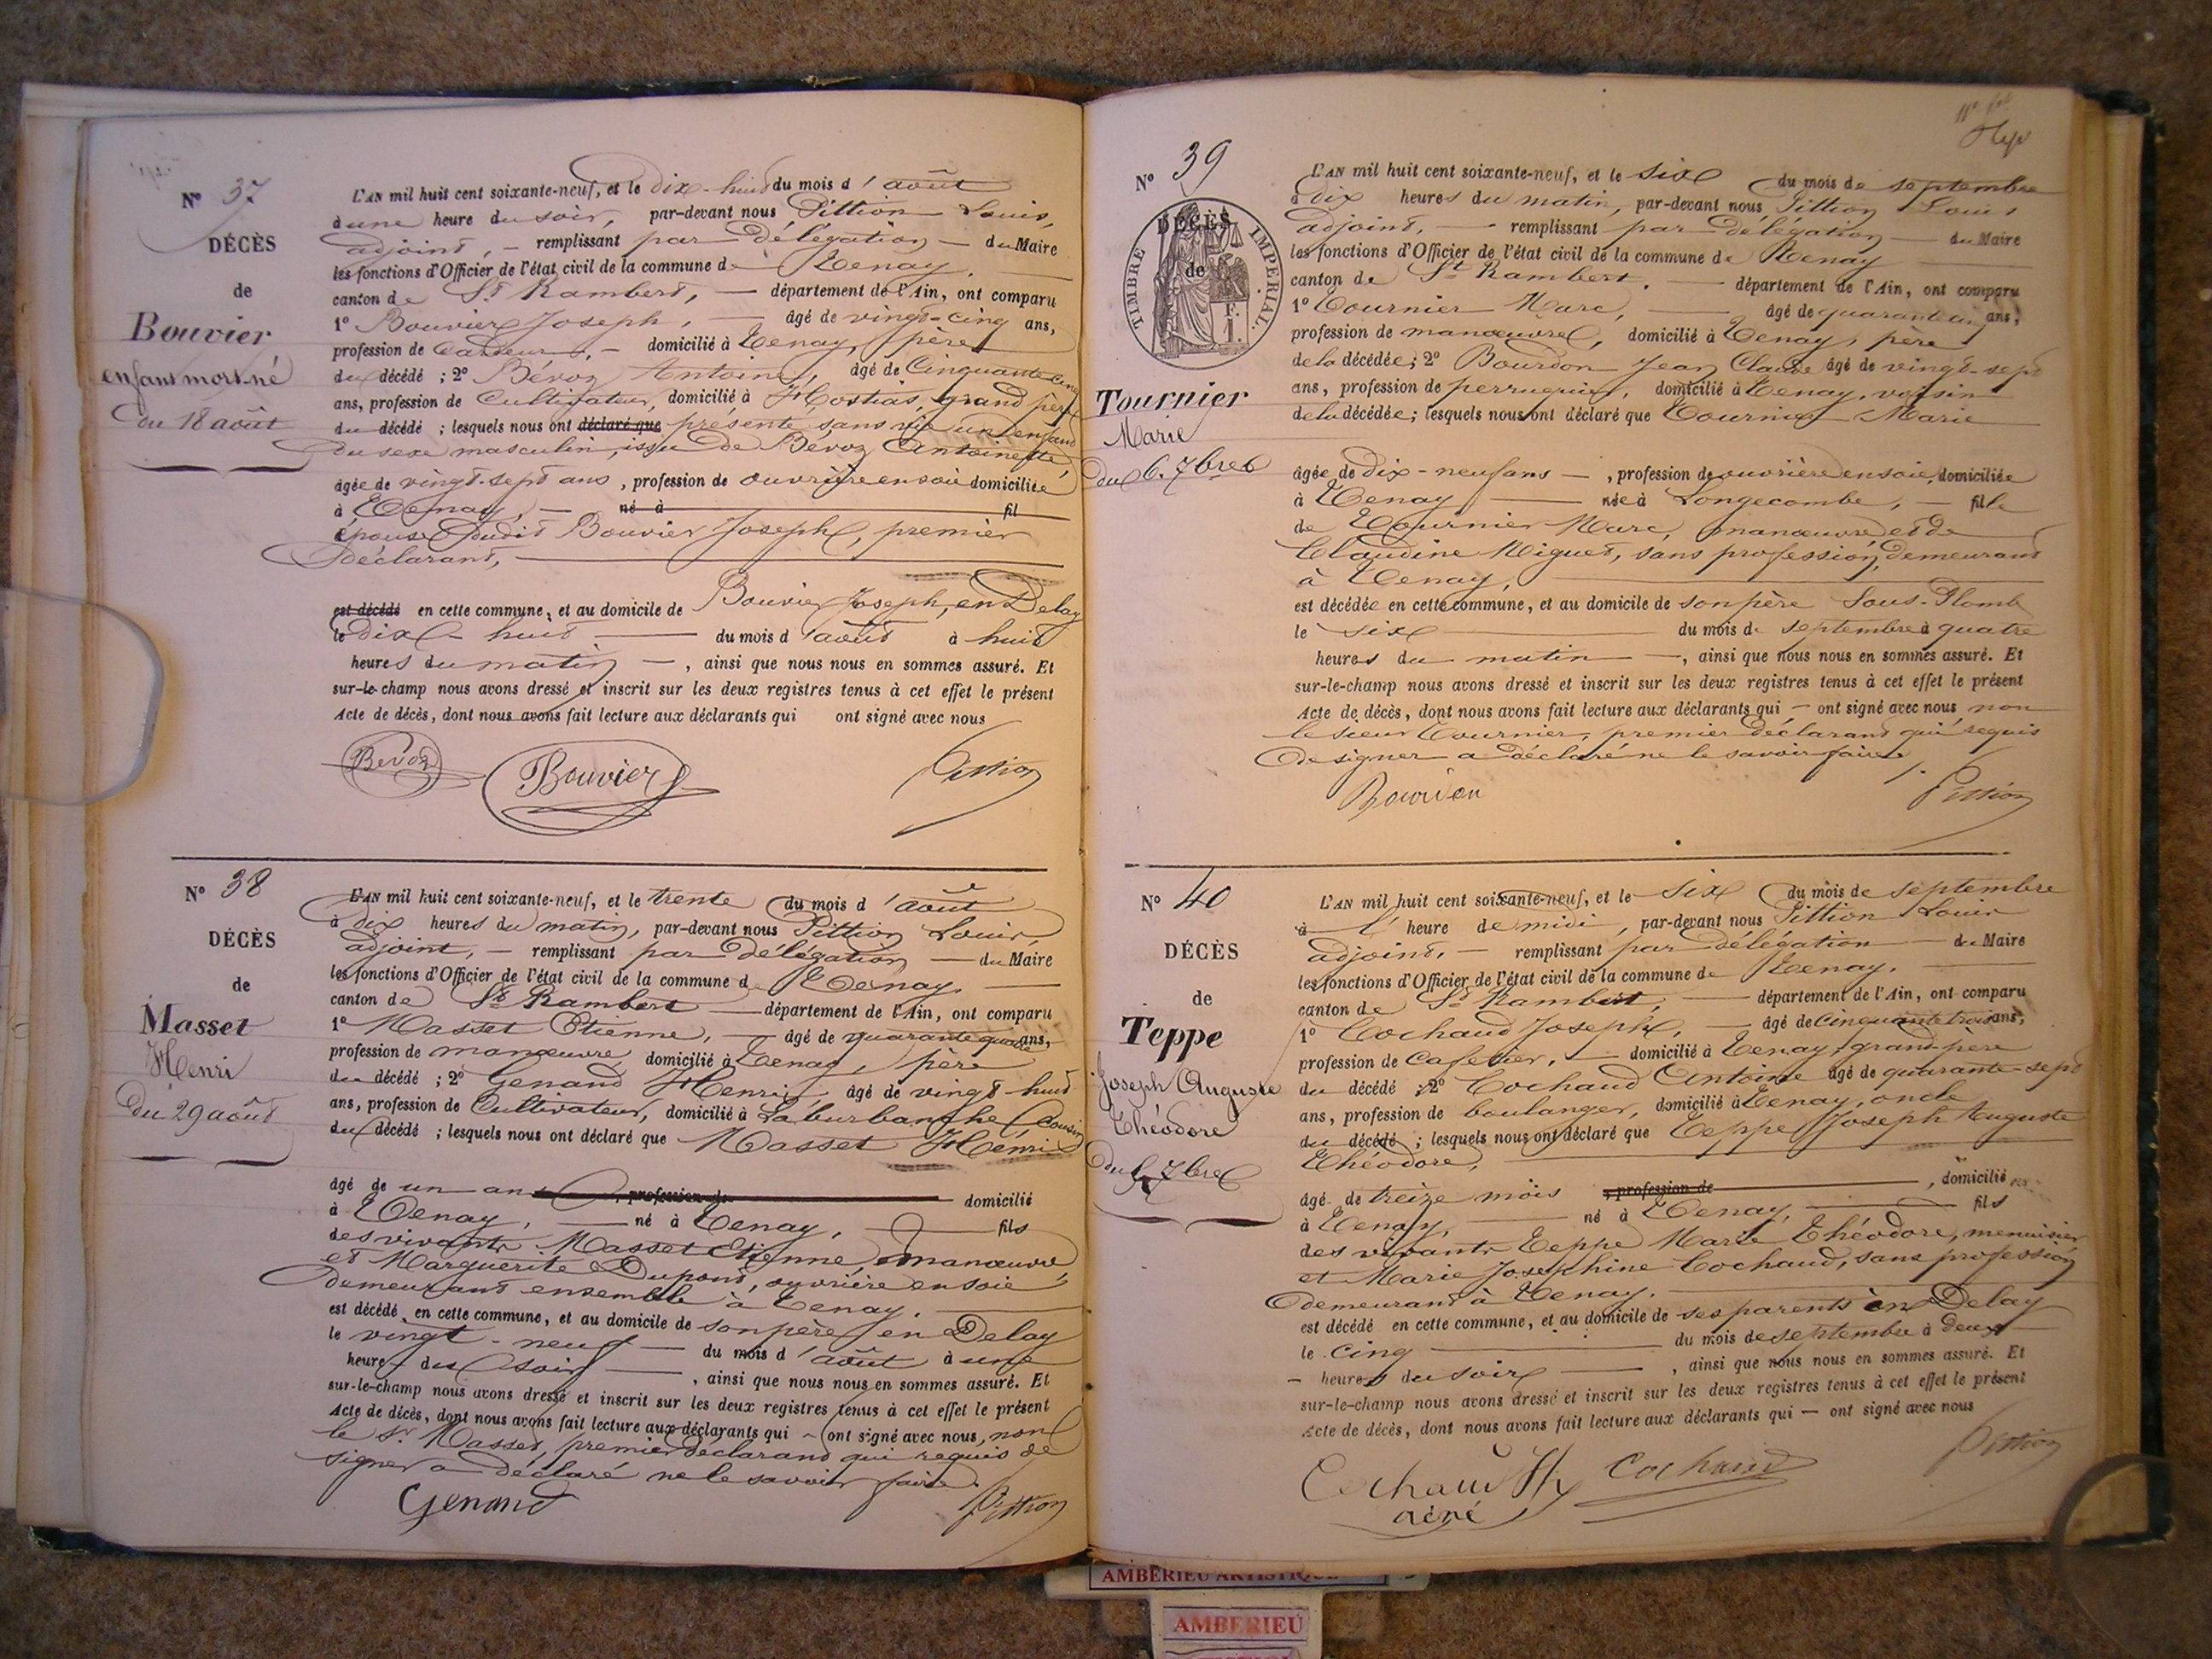 N° 37
DÉCÈS
de
Bouvier
enfant mort-né
du 18 août
L'AN mil huit cent soixante-neuf, et le dix-huit du mois d'août
à une heure du soir, par-devant nous Pittion Louis,
adjoint, remplissant par délégation du Maire
les fonctions d'Officier de l'état civil de la commune de Tenay,
canton de St Rambert, département de l'Ain, ont comparu
1° Bouvier Joseph, âgé de vingt-cinq ans,
profession de cardeur, domicilié à Tenay, père
du décédé ; 2° Bévoz Antoine, âgé de cinquante cinq
ans, profession de Cultivateur, domicilié à Hostias, grand père
du décédé ; lesquels nous ont déclaré que présenté sans vie un enfant
du sexe masculin, issu de Bévoz Antoinette,
âgée de vingt-sept ans, profession de ouvrière en soie domiciliée
à Tenay, né à fil
épouse dudit Bouvier Joseph, premier
déclarant,
est décédé en cette commune, et au domicile de Bouvier Joseph, en Delay
le dix-huit du mois d'août à huit
heures du matin, ainsi que nous nous en sommes assuré. Et
sur-le-champ nous avons dressé et inscrit sur les deux registres tenus à cet effet le présent
Acte de décès, dont nous avons fait lecture aux déclarants qui ont signé avec nous
Bevoz Bouvier Pittion
N° 38
DÉCÈS
de
Masset
Henri
du 29 août
L'AN mil huit cent soixante-neuf, et le trente du mois d'août
à dix heures du matin, par-devant nous Pittion Louis,
adjoint, remplissant par délégation du Maire
les fonctions d'Officier de l'état civil de la commune de Tenay,
canton de St Rambert département de l'Ain, ont comparu
1° Masset Etienne, âgé de quarante quatre ans,
profession de manœuvre domicilié à Tenay, père
du décédé ; 2° Genand Henri, âgé de vingt-huit
ans, profession de Cultivateur, domicilié à La burbanche, Cousin
du décédé ; lesquels nous ont déclaré que Masset Henri
âgé de un an, profession de domicilié
à Tenay, né à Tenay, fils
des vivants Masset Etienne, manœuvre
et Marguerite Dupont, ouvrière en soie
demeurant ensemble à Tenay.
est décédé en cette commune, et au domicile de son père en Delay
le vingt-neuf du mois d'août à une
heure du soir, ainsi que nous nous en sommes assuré. Et
sur-le-champ nous avons dressé et inscrit sur les deux registres tenus à cet effet le présent
Acte de décès, dont nous avons fait lecture aux déclarants qui ont signé avec nous, non
le Sr Masset, premier déclarant qui requis de
signer a déclaré ne le savoir faire.
Genand Pittion
N° 39
DÉCÈS
de
TIMBRE IMPERIAL.
1 F.
Tournier
Marie
du 6. 7bre
L'AN mil huit cent soixante-neuf, et le six du mois de septembre
à dix heures du matin, par-devant nous Pittion Louis
adjoint, remplissant par délégation du Maire
les fonctions d'Officier de l'état civil de la commune de Tenay
canton de St Rambert, département de l'Ain, ont comparu
1° Tournier Marc, âgé de quarante un ans,
profession de manœuvre, domicilié à Tenay, père
de la décédée ; 2° Bourdon Jean Claude âgé de vingt-sept
ans, profession de perruquier, domicilié à Tenay, voisin
de la décédée ; lesquels nous ont déclaré que Tournier Marie
âgée de dix-neuf ans, profession de ouvrière en soie, domiciliée
à Tenay née à Longecombe, fille
de Tournier Marc, manœuvre et de
Claudine Miguet, sans profession, demeurant
à Tenay,
est décédée en cette commune, et au domicile de son père Sous-Plomb
le six du mois de septembre à quatre
heures du matin, ainsi que nous nous en sommes assuré. Et
sur-le-champ nous avons dressé et inscrit sur les deux registres tenus à cet effet le présent
Acte de décès, dont nous avons fait lecture aux déclarants qui ont signé avec nous non
le sieur Tournier, premier déclarant qui requis
de signer a déclaré ne le savoir faire
Bourdon Pittion
N° 40
DÉCÈS
de
Teppe
Joseph Auguste
Théodore
du 5 7bre
L'AN mil huit cent soixante-neuf, et le six du mois de septembre
à l'heure de midi, par-devant nous Pittion Louis
adjoint, remplissant par délégation du Maire
les fonctions d'Officier de l'état civil de la commune de Tenay,
canton de St Rambert, département de l'Ain, ont comparu
1° Cochaud Joseph, âgé de cinquante trois ans,
profession de Cafetier, domicilié à Tenay, grand père
du décédé ; 2° Cochaud Antoine âgé de quarante-sept
ans, profession de boulanger, domicilié à Tenay, oncle
du décédé ; lesquels nous ont déclaré que Teppe Joseph Auguste
Théodore,
âgé de treize mois, profession de, domicilié
à Tenay, né à Tenay, fils
des vivants Teppe Marie Théodore, menuisier
et Marie Josephine Cochaud, sans profession
demeurant à Tenay.
est décédé en cette commune, et au domicile de ses parents en Delay
le cinq du mois de septembre à deux
heures du soir, ainsi que nous nous en sommes assuré. Et
sur-le-champ nous avons dressé et inscrit sur les deux registres tenus à cet effet le présent
Acte de décès, dont nous avons fait lecture aux déclarants qui ont signé avec nous
Cochaud Cochaud Pittion
ainé
AMBERIEU ARTISTIQUE
AMBERIEU